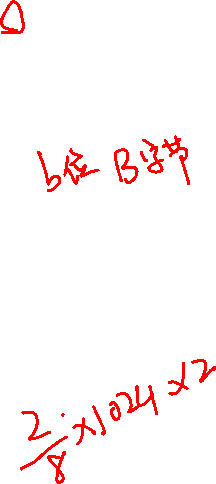 b位 B字节
2/8×1024×2